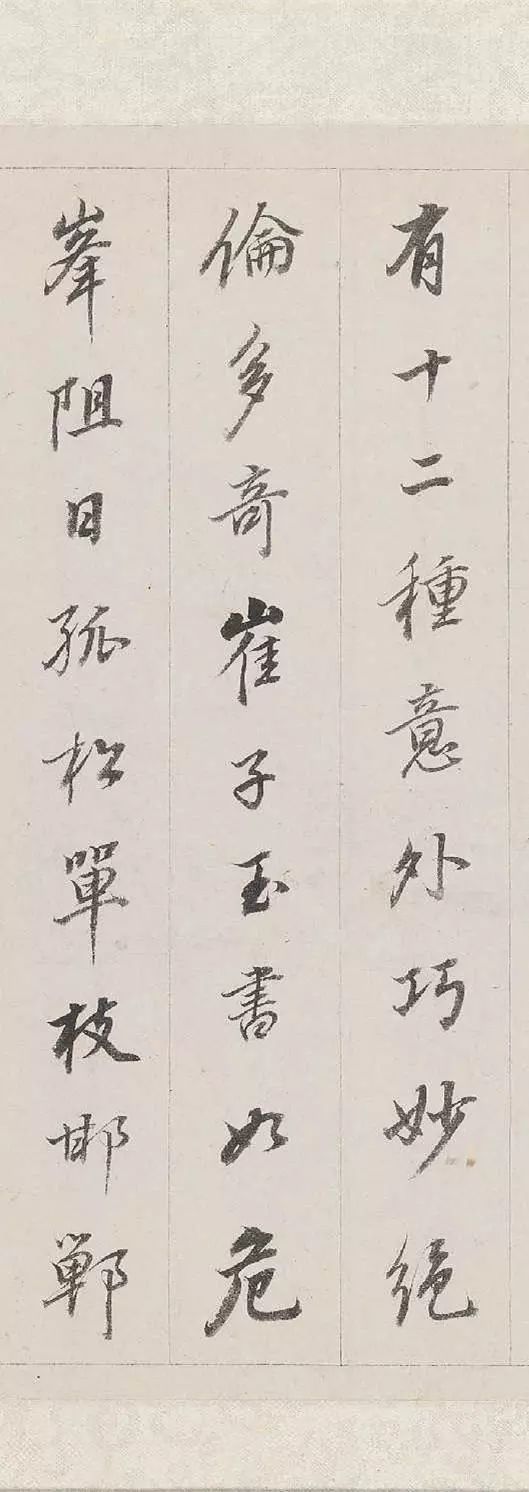 有十二種意外巧妙絶
倫多奇崔子玉書如危
峯阻日孤松單枝邯鄲